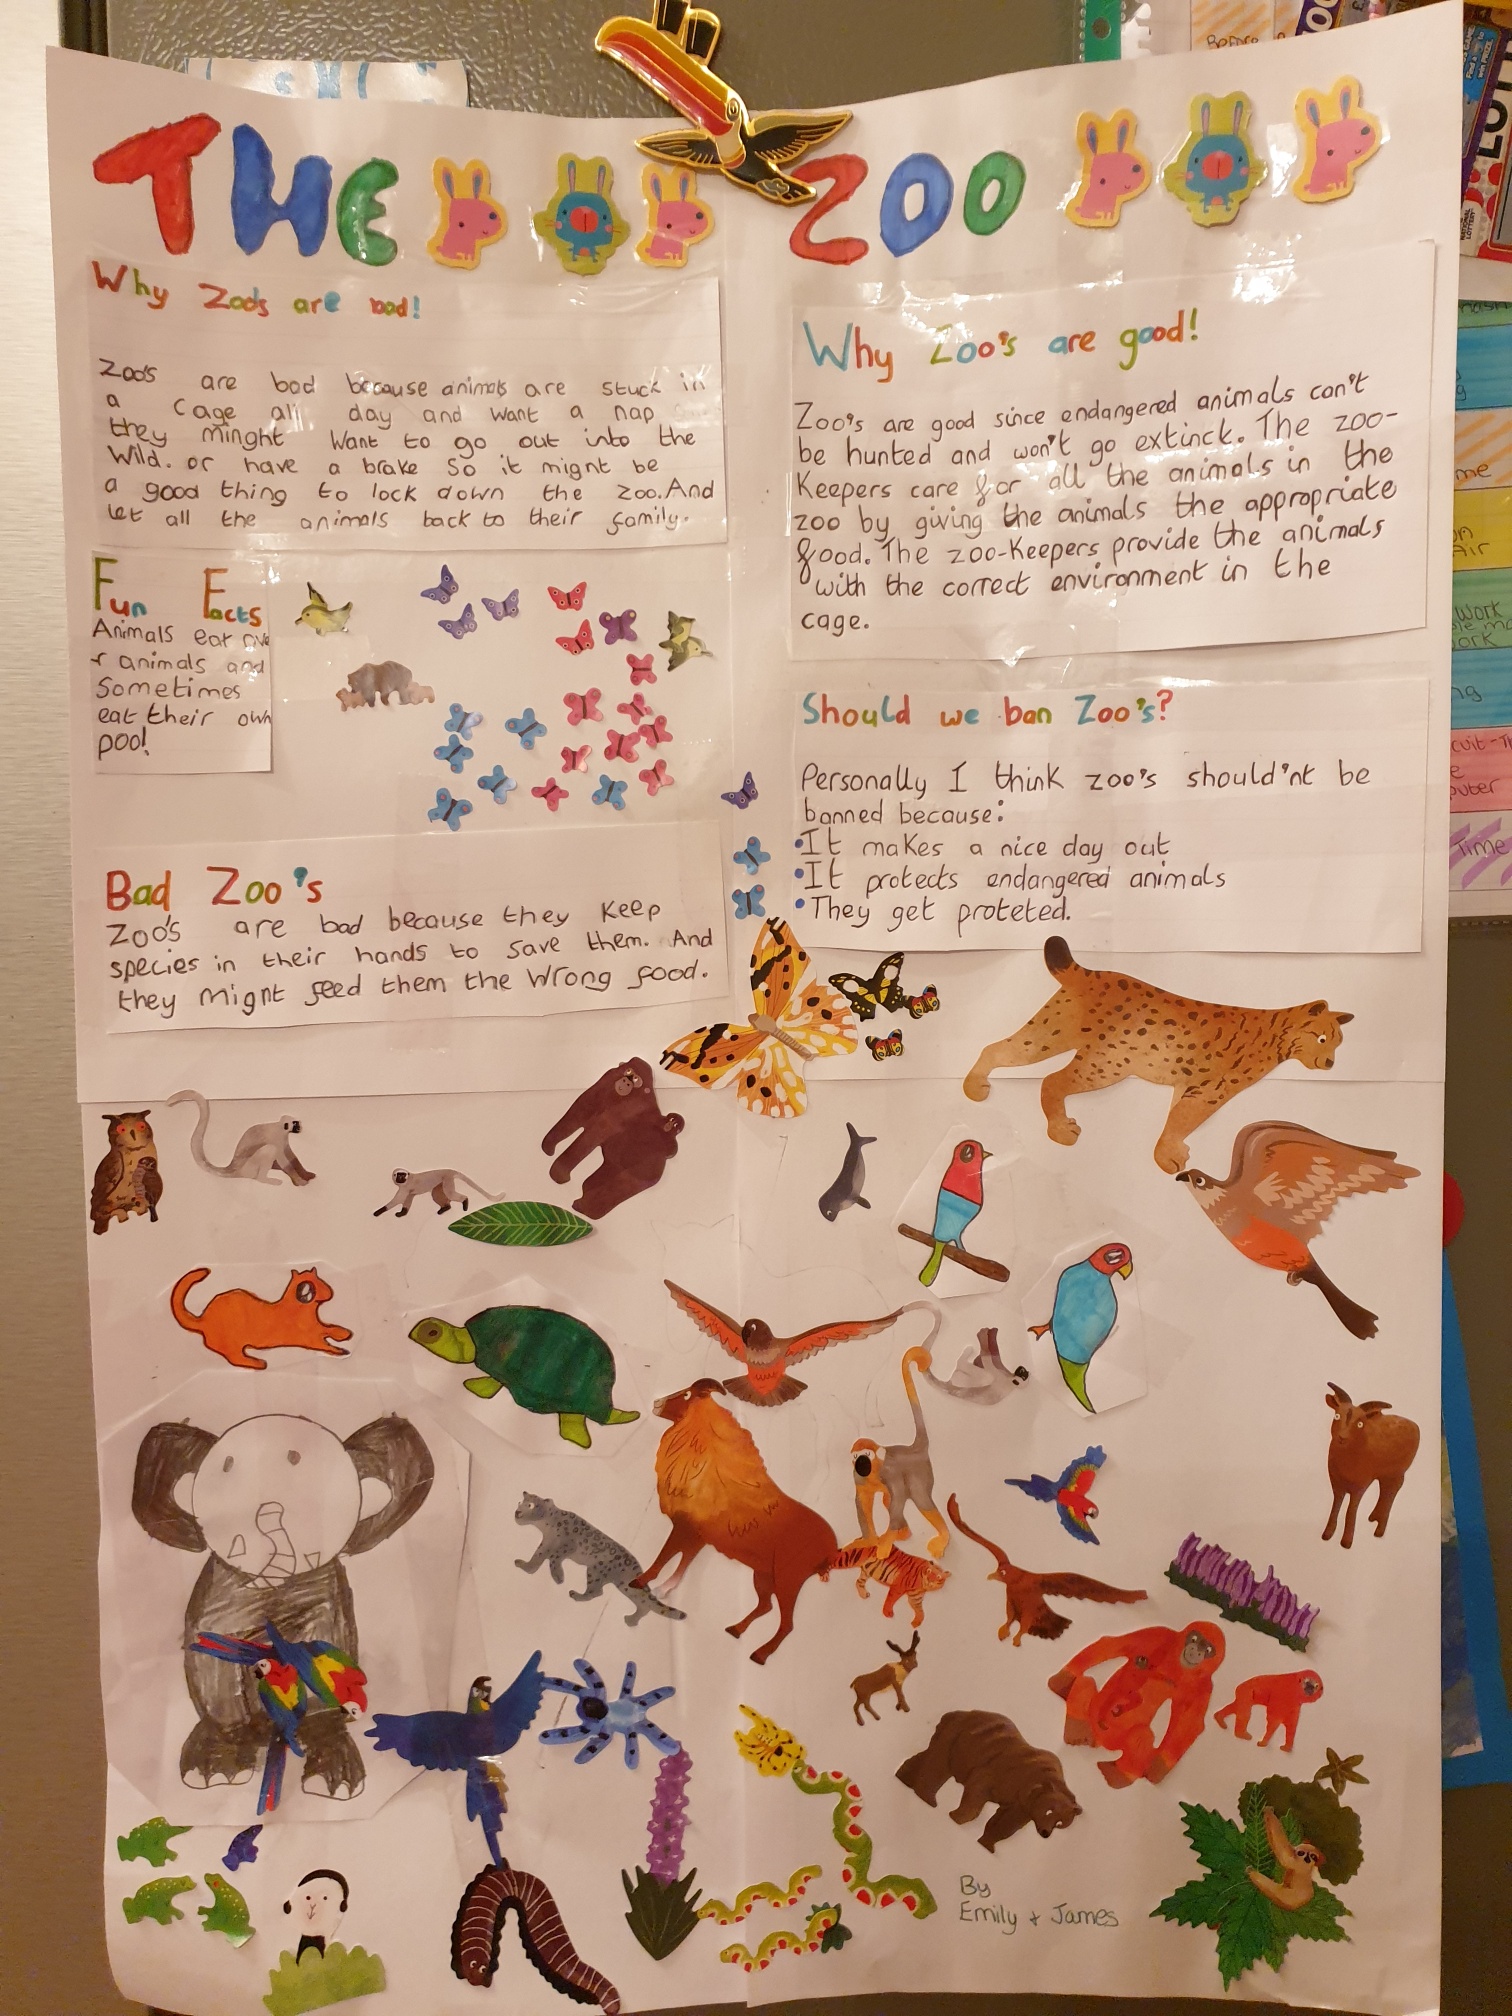 THE ZOO
Why Zoo's are bad!
Zoo's are bad because animals are stuck in
a cage all day and want a nap
they minght want to go out into the
Wild. or have a brake so it mignt be
a good thing to lock down the zoo. And
let all the animals back to their family.
Fun Facts
Animals eat ove
r animals and
Sometimes
eat their own
poo!
Bad Zoo's
Zoo's are bad because they keep
species in their hands to save them. And
they mignt feed them the wrong food.
Why Zoo's are good!
Zoo's are good since endangered animals can't
be hunted and won't go extinck. The zoo-
Keepers care for all the animals in the
zoo by giving the animals the appropriate
food. The zoo-Keepers provide the animals
with the correct environment in the
cage.
Should we ban Zoo's?
Personally I think zoo's should'nt be
banned because:
•It makes a nice day out
•It protects endangered animals
•They get proteted.
By
Emily + James
Before
LOT
NATIONAL LOTTERY
me
Air
Work
ork
ng
cuit-T
e
outer
Time